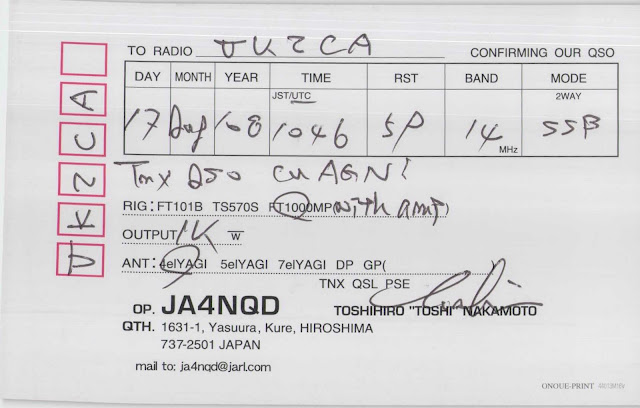 TO RADIO VK2CA CONFIRMING OUR QSO
DAY MONTH YEAR TIME RST BAND MODE
JST/UTC 2WAY
17 Aug '08 1046 59 14 MHz SSB
Tmx QSO CU AGN!
RIG: FT101B TS570S FT1000MP (with amp)
OUTPUT 1K W
ANT: 4elYAGI 5elYAGI 7elYAGI DP GP(
TNX QSL PSE
OP. JA4NQD TOSHIHIRO "TOSHI" NAKAMOTO
QTH. 1631-1, Yasuura, Kure, HIROSHIMA
737-2501 JAPAN
mail to: ja4nqd@jarl.com
ONOUE-PRINT
VK2CA